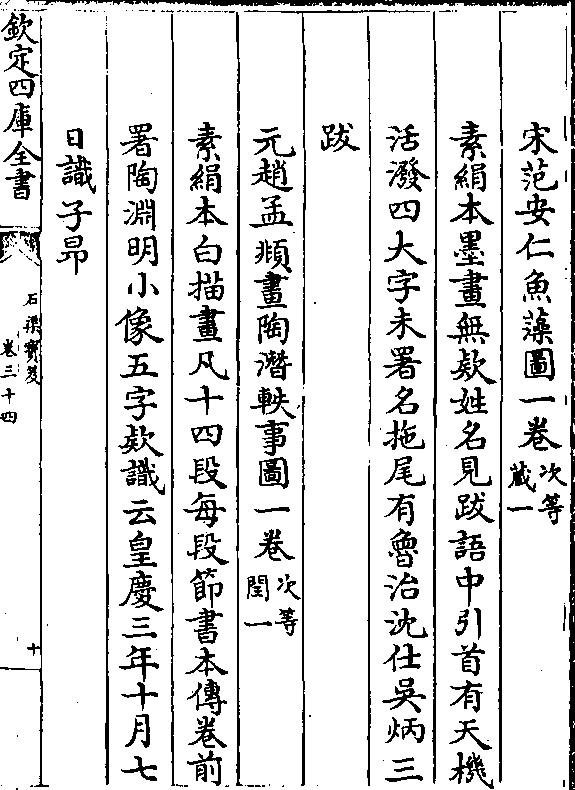 宋范安仁魚藻圖一卷次等藏一
素絹本墨畫無欵姓名見跋語中引首有天機
活潑四大字未署名拖尾有魯治沈仕吳炳三
跋
元趙孟頫畫陶潛軼事圖一卷次等閏一
素絹本白描畫凡十四段每段節書本傳卷前
署陶淵明小像五字欵識云皇慶三年十月七
日識子昂
欽定四庫全書
石渠寳笈
卷三十四
十